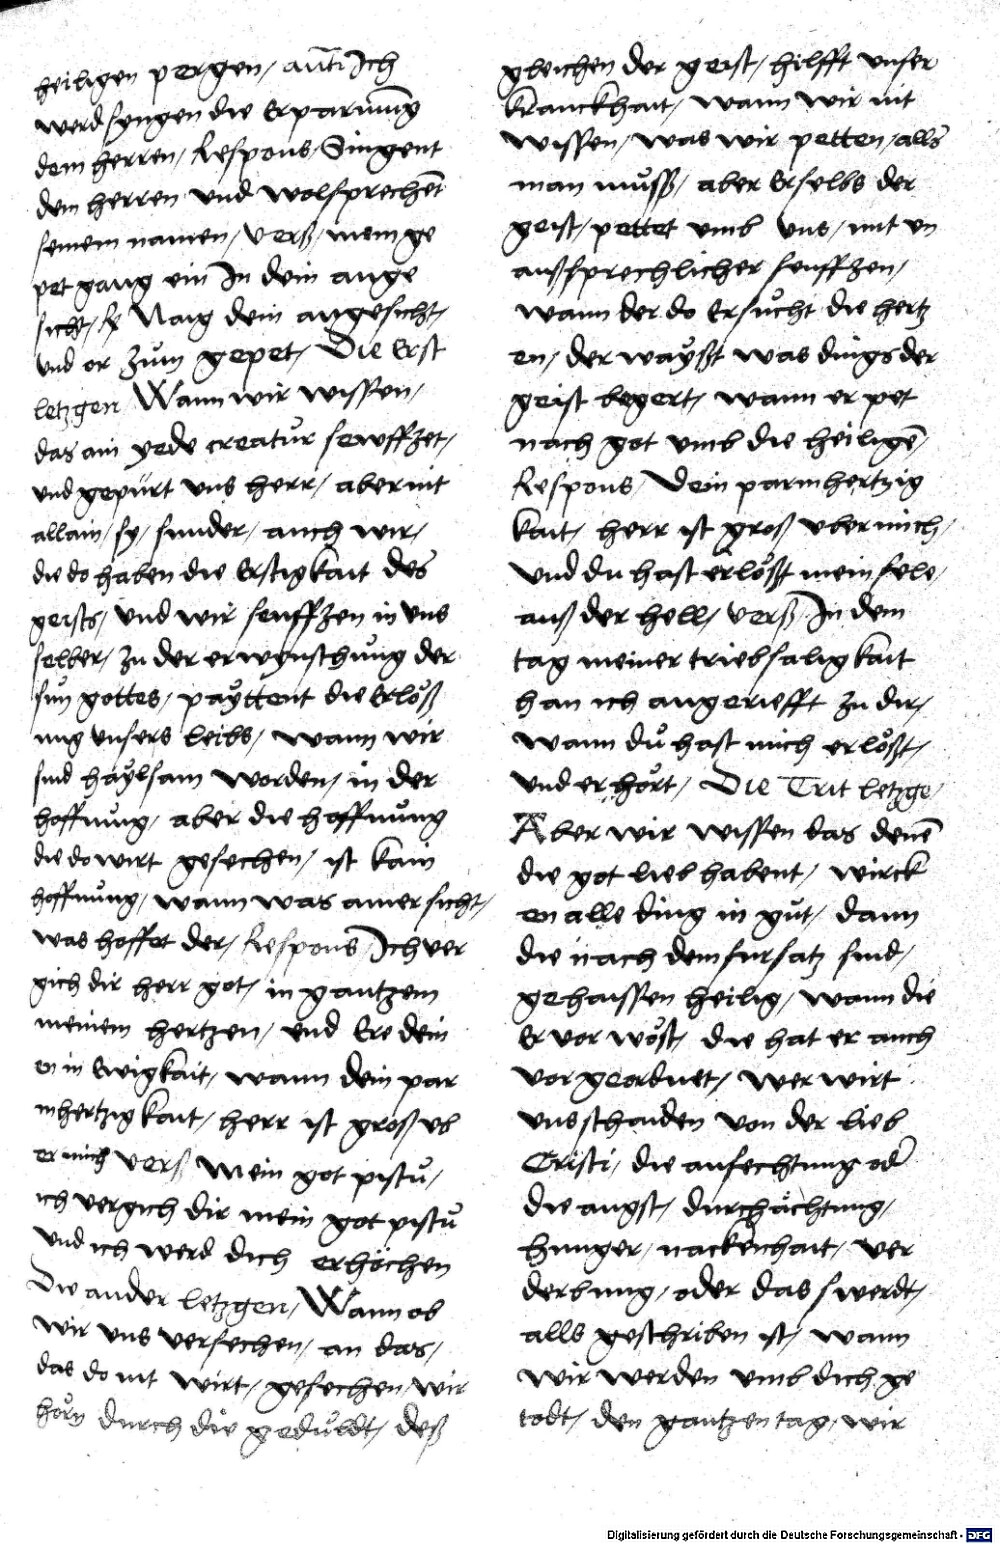 heiligen pergen / anti Ich
werd syngen die Erparmūg
dem herren / Respons / Singent
dem herren vnd wolsprechēt
seinem namen / Verß / mein ge
pet gang ein In dein ange
sicht / Naig dein angesicht /
vnd or zům gepet / Die Erst
letzgen Wann wir wissen /
das ain yede creatůr sewffzet /
vnd gepürt vns herr / aber nit
allain / sy / sunder / auch wir /
die do haben die Erstigkait des
geists / vnd wir seuffzen in vns
selber / zu der erwynschůng der
sün gottes / payttent die Erlöß
ung vnsers leibs / wann wir
sind haylsam worden / in der
hoffnůng / aber die hoffnůng
die do wirt gesechen / ist kain
hoffnung / wann was ainer sicht /
was hoffet der / Respons / Ich ver
gich dir herr got / in gantzem
meinem hertzen / vnd Ere dein
en in Ewigkait / wann dein par
mhertzigkait / herr ist groß vb
er mich Verß Mein got pistů /
ich vergich dir mein got pistů
vnd ich werd dich erhöchen
Die ander letzgen / Wann ob
wir vns versechen / an das /
das do nit wirt / gesechen / wir
hörn durch die gedůldt / deß
gleichen der geist / hilfft vnser
kranckhait / wann wir nit
wissen / was wir petten / alls
man můsß / aber Erselbs der
geist / pettet vmb vns / mit vn
außsprechlicher seuffzen /
wann der do ersůcht die hertz
en / der wayßt was dings der
geist begert / wann er pet
nach got vmb die heiligē /
Respons / Dein parmhertzig
kait / herr ist groß vber mich /
vnd du hast erlößt mein sele /
auß der hell / Verß / In dem
tag meiner triebsaligkait
han ich angerüefft zu dir /
wann dů hast mich erlößt /
vnd erhört / Die Trit letzge /
Aber wir wissen das denē
die got lieb habent / wirck
en alle ding in gůt / dann
die nach dem fursatz sind /
gehaissen heilig / wann die
Er vor wöst / die hat er auch
vorgeordnet / wer wirt
vns schaiden von der lieb
Cristi / die anfechtung od
die angst / durchächtung /
hunger / nackenhait / ver
derbung / oder das swerdt /
alls geschriben ist / wann
wir werden vmb dich ge
todt / den gantzen tag / wir
Digitalisierung gefördert durch die Deutsche Forschungsgemeinschaft - DFG